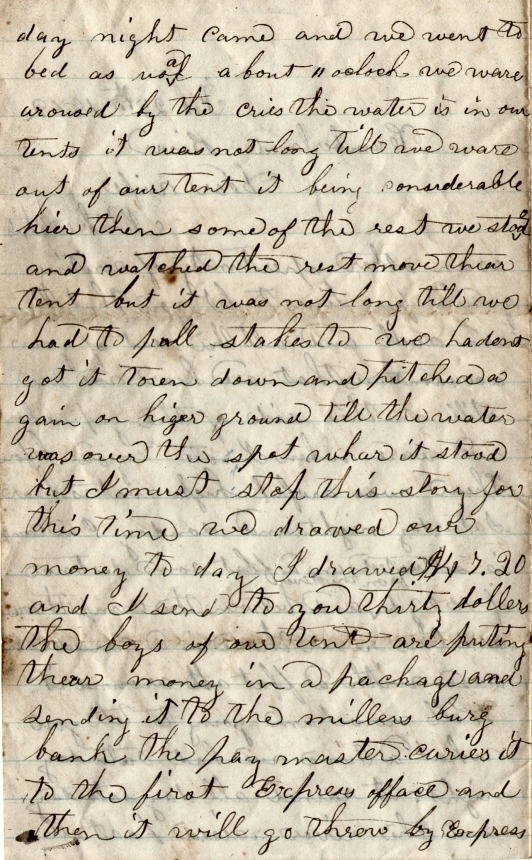 day night came and we went to
bed as usal about 11 oclock we ware
arousd by the cries the water is in our
tents it was not long till we ware
out of our tent it being considerable
hier then some of the rest we stood
and watched the rest move thear
tent but it was not long till we
had to pull stakes to we hadent
got it toren down and pitched a
gain on higer ground till the water
was over the spot whar it stood
but I must stop this story for
this time we drawed our
money to day I drawed 7.20
and I send to you thirty dollers
the boys of our tent are puting
thear money in a package and
sending it to the millers burg
bank the pay master caries it
to the first Express offace and
then it will go threw by Express